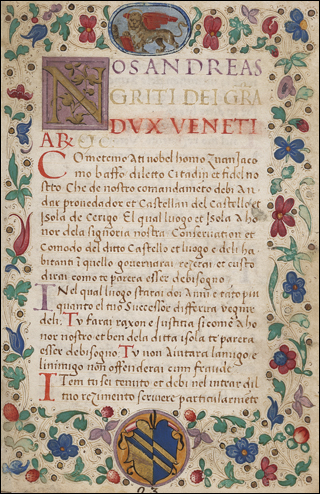 NOS ANDREAS
GRITI DEI GRA
DVX VENETI
AR &c
Cometemo At uobel homo Zuan Jaco
mo baffo diletto Citadin et fidel no
stro Che de nostro comandameto debi An
dar prouedador et Castellan del Castello et
Isola de Cerigo. El qual luogo et Isola A ho
nor dela signoria nostra Conseruation et
Comodo del ditto Castello et luogo e deli ha
bitanti i quello gouernarai rezerai et custo
dirai como te parera esser debisogno.
In el qual luogo starai doi Anni e tato piu
quanto el tuo Successor differira uegnir
deli. Tu farai raxon e Iustitia si como A ho
nor nostro et ben dela ditta isola te parera
esser debisogno. Tu non Aiutarai lamigo e
linimigo non offenderai cum fraude
Item tu sei tenuto et debi nel intrar dil
tuo rezimento scriuere particularmete